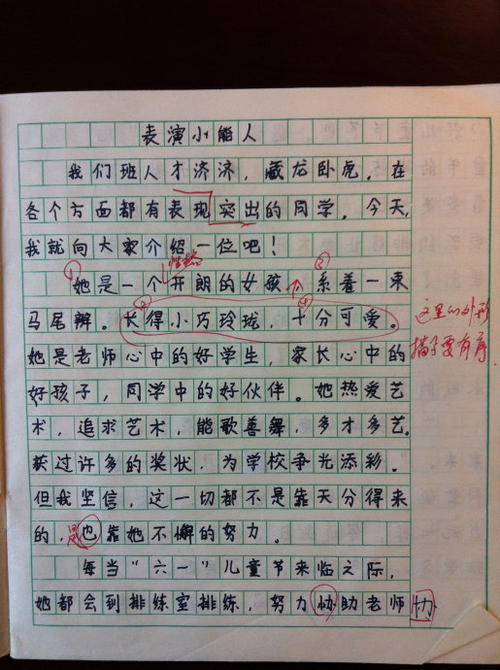 表演小能人
我们班人才济济，藏龙卧虎，在
各个方面都有表现突出的同学，今天，
我就向大家介绍一位吧！
性格
① ③
她是一个开朗的女孩，系着一束
② ④
马尾辫。长得小巧玲珑，十分可爱。
这里的外形
描写要有序
她是老师心中的好学生，家长心中的
好孩子，同学中的好伙伴。她热爱艺
术，追求艺术，能歌善舞，多才多艺。
获过许多的奖状，为学校争光添彩。
但我坚信，这一切都不是靠天分得来
的，也靠她不懈的努力。
是
每当“六一”儿童节来临之际，
她都会到排练室排练，努力协助老师协